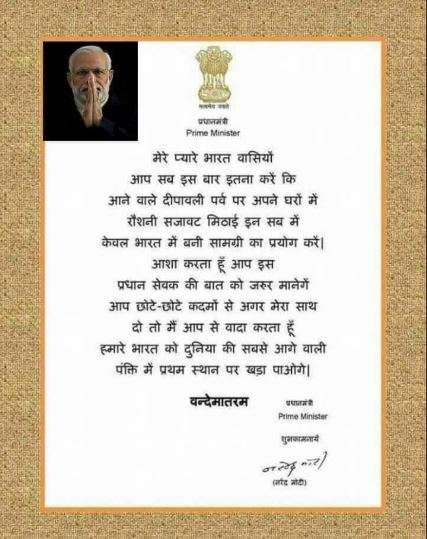 सत्यमेव जयते
प्रधानमंत्री
Prime Minister
मेरे प्यारे भारत वासियों
आप सब इस बार इतना करें कि
आने वाले दीपावली पर्व पर अपने घरों में
रौशनी सजावट मिठाई इन सब में
केवल भारत में बनी सामग्री का प्रयोग करें|
आशा करता हूँ आप इस
प्रधान सेवक की बात को जरुर मानेगें
आप छोटे-छोटे कदमों से अगर मेरा साथ
दो तो मैं आप से वादा करता हूँ
हमारे भारत को दुनिया की सबसे आगे वाली
पंक्ति में प्रथम स्थान पर खड़ा पाओगे|
वन्देमातरम
प्रधानमंत्री
Prime Minister
शुभकामनायें
नरेंद्र मोदी
(नरेंद्र मोदी)